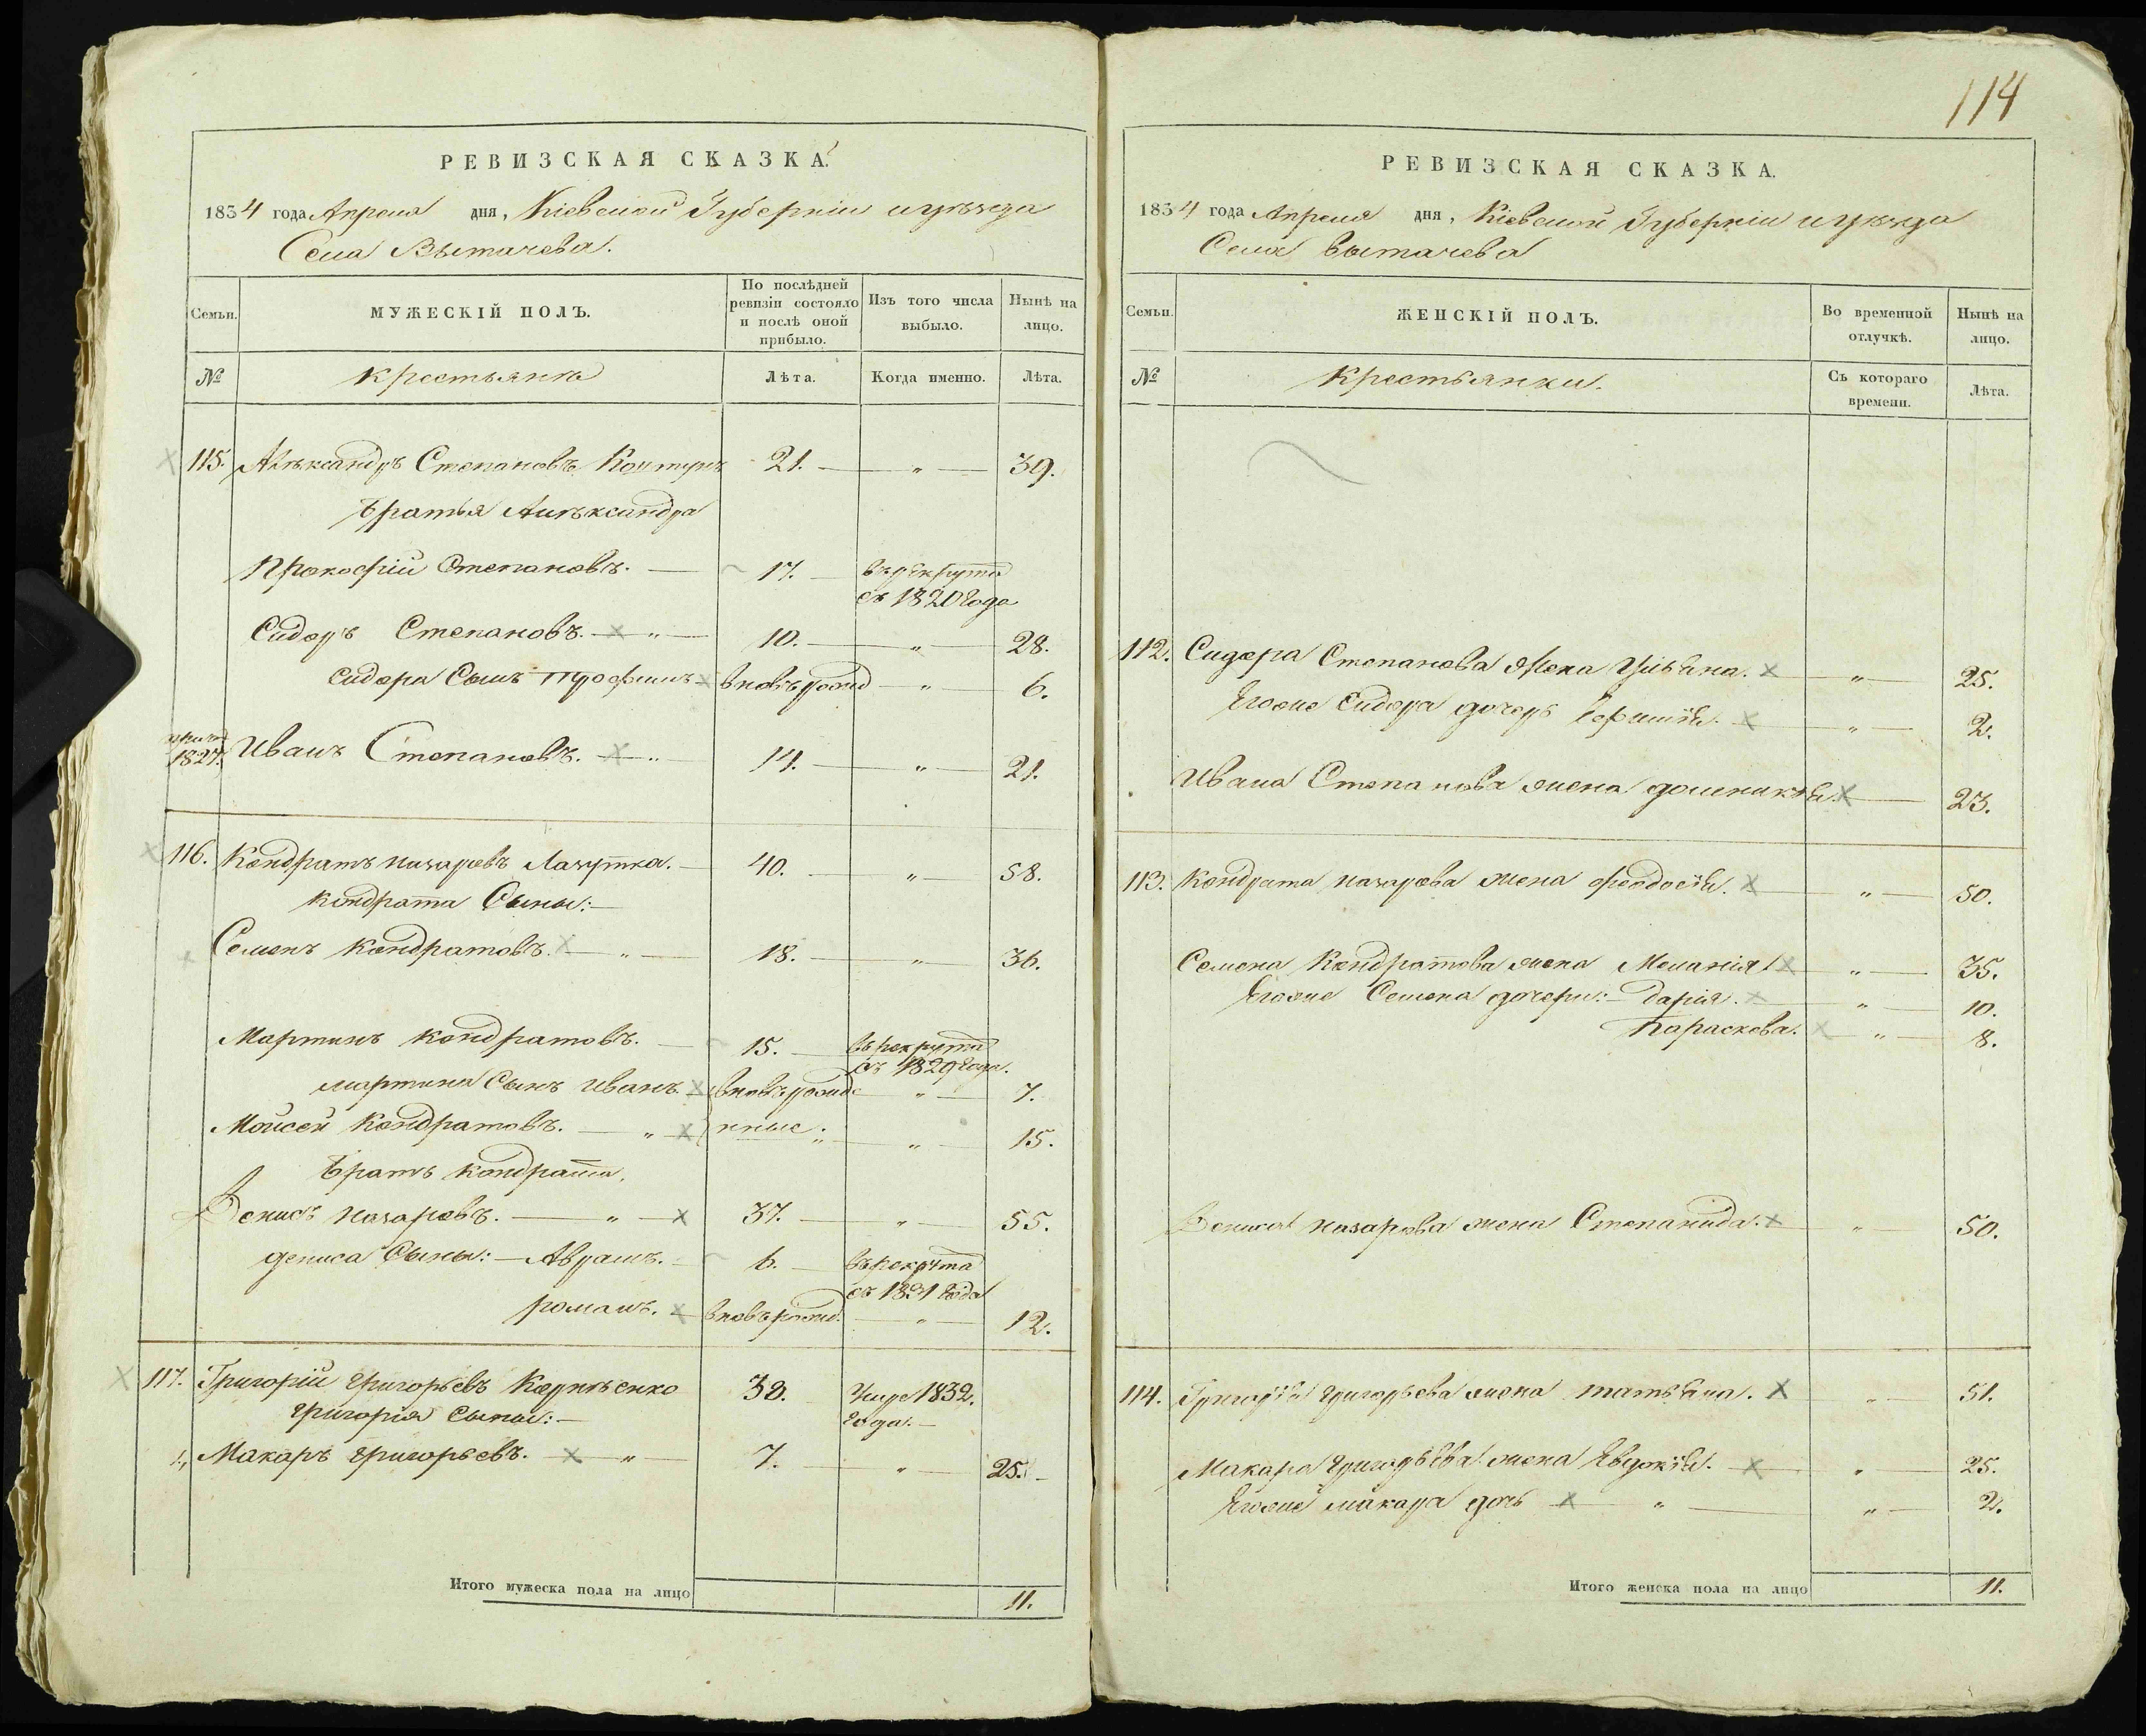 114
РЕВИЗСКАЯ СКАЗКА.
1834 года Апреля дня, Кіевской Губерніи и уѣзда
Села Вытачева.
Семьи.
МУЖЕСКІЙ ПОЛЪ.
По послѣдней ревизіи состояло и послѣ оной прибыло.
Изъ того числа выбыло.
Нынѣ на лицо.
№
Крестьяне
Лѣта.
Когда именно.
Лѣта.
115. Алѣксандръ Степановъ 21. — „ — 39.
Братья Алѣксандра
Прокофій Степановъ. — 17. — въ рекрута
съ 1820 года
Сидоръ Степановъ. — „ — 10. — „ — 28.
Сидора Сынъ Трофимъ — вновь рожд — „ — 6.
1827. Иванъ Степановъ. — „ — 14. — „ — 21.
116. Кондратъ назаровъ Лазутка. — 40. — „ — 58.
Кондрата Сыны: —
Семенъ Кондратовъ. — „ — 18. — „ — 36.
Мартинъ Кондратовъ. — 15. — въ рекрута
съ 1829 года.
мартина Сынъ иванъ. — вновь рожде — „ — 7.
Мойсей Кондратовъ. — „ нные. „ — „ — 15.
Братъ Кондрата.
Денисъ назаровъ. — „ — 37. — „ — 55.
дениса Сыны: — Аврамъ. — 6. — въ рекрута
съ 1831 года
романъ. — вновь рожд. — „ — 12.
117. Григорій григорьевъ Карпѣенко 38. Умре 1832.
григорія Сыны: — года. —
1., Макаръ григорьевъ. — „ — 7. — „ — 25. —
Итого мужеска пола на лицо 11.
РЕВИЗСКАЯ СКАЗКА.
1834 года Апреля дня, Кіевской Губерніи и уѣзда
Села Вытачева
Семьи.
ЖЕНСКІЙ ПОЛЪ.
Во временной отлучкѣ.
Нынѣ на лицо.
№
Крестьянки.
Съ котораго времени.
Лѣта.
112. Сидора Степанова Жена Ульяна. — „ — 25.
Егоже Сидора дочерь — „ — 2.
Ивана Степанова жена доменикія. — 23.
113. Кондрата назарова жена феодосія. — „ — 50.
Семена Кондратова жена Меланія — „ — 35.
Егоже Семена дочери: — Дарія. — „ — 10.
Параскева. — „ — 8.
Дениса назарова жена Степанида. — „ — 50.
114. Григорія григорьева жена татьяна. — „ — 51.
Макара григорьева жена Евдокія. — „ — 25.
Егоже макара дочь — „ — „ — 2.
Итого женска пола на лицо 11.